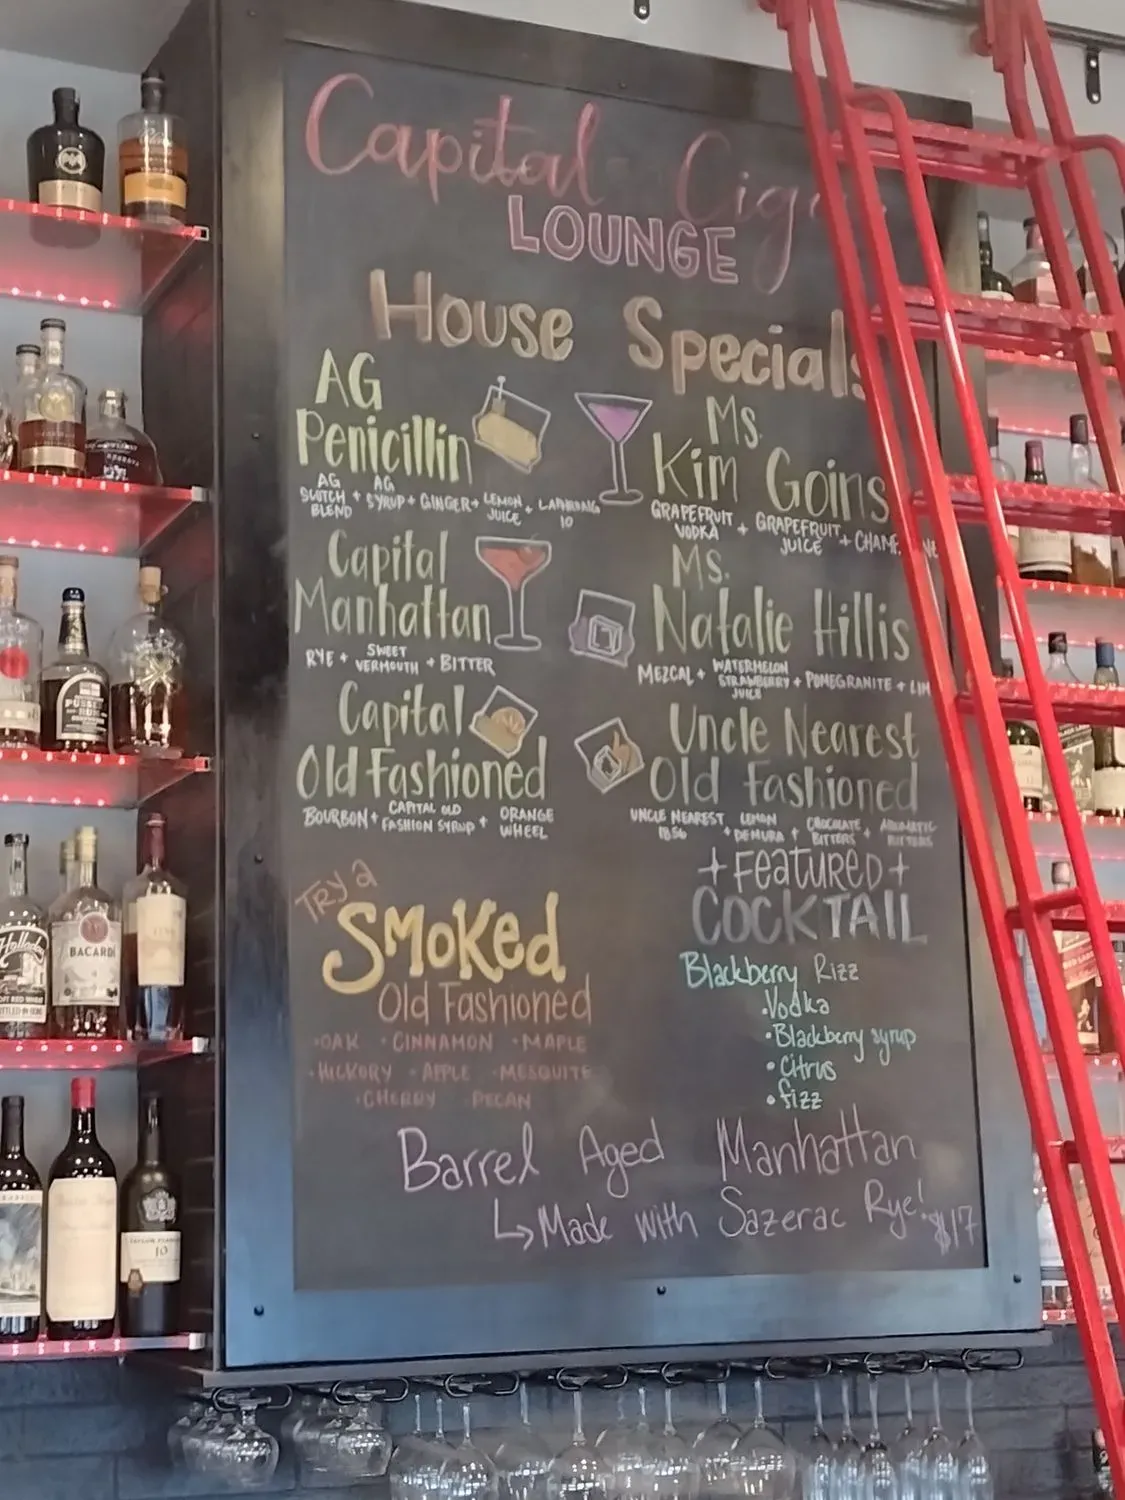 Capital Cig
LOUNGE
House Specials
AG
Penicillin
AG SCOTCH BLEND + AG SYRUP + GINGER + LEMON JUICE + LAPHROAIG 10
Ms.
Kim Goins
GRAPEFRUIT VODKA + GRAPEFRUIT JUICE + CHAMP NE
Capital
Manhattan
RYE + SWEET VERMOUTH + BITTER
Ms.
Natalie Hillis
MEZCAL + WATERMELON STRAWBERRY JUICE + POMEGRANITE + LIM
Capital
Old Fashioned
BOURBON + CAPITAL OLD FASHION SYRUP + ORANGE WHEEL
Uncle Nearest
Old Fashioned
UNCLE NEAREST 1856 + LEMON DEMURA + CHOCOLATE BITTERS + AROMATIC BITTERS
Try a
Smoked
Old Fashioned
•OAK •CINNAMON •MAPLE
•HICKORY •APPLE •MESQUITE
•CHERRY PECAN
+ Featured +
COCKTAIL
Blackberry Rizz
•Vodka
•Blackberry syrup
•Citrus
•fizz
Barrel Aged Manhattan
↳ Made with Sazerac Rye! $17
BACARDI
10